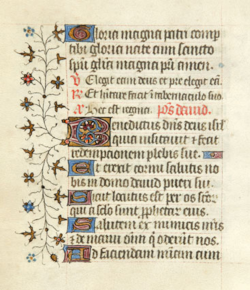 Gloria magna patri comp
tibi gloria nate cum sancto
spū gloria magna
V Elegit eam deus et pre elegit eā
Et habitare facit in tabernaculo suo
A Hec est regina
Benedictus dn̄s deus isrl
quia visitavit et fecit
redempcionem plebis sue
Et erexit cornu salutis no
bis in domo david pueri sui
Sicut locutus est per os scōr
qui a seculo sunt prophetar eius
Salutem ex inimicis nr̄is
et de manu om̄ q̄ oderūt nos
Ad faciendam m̄iam cum